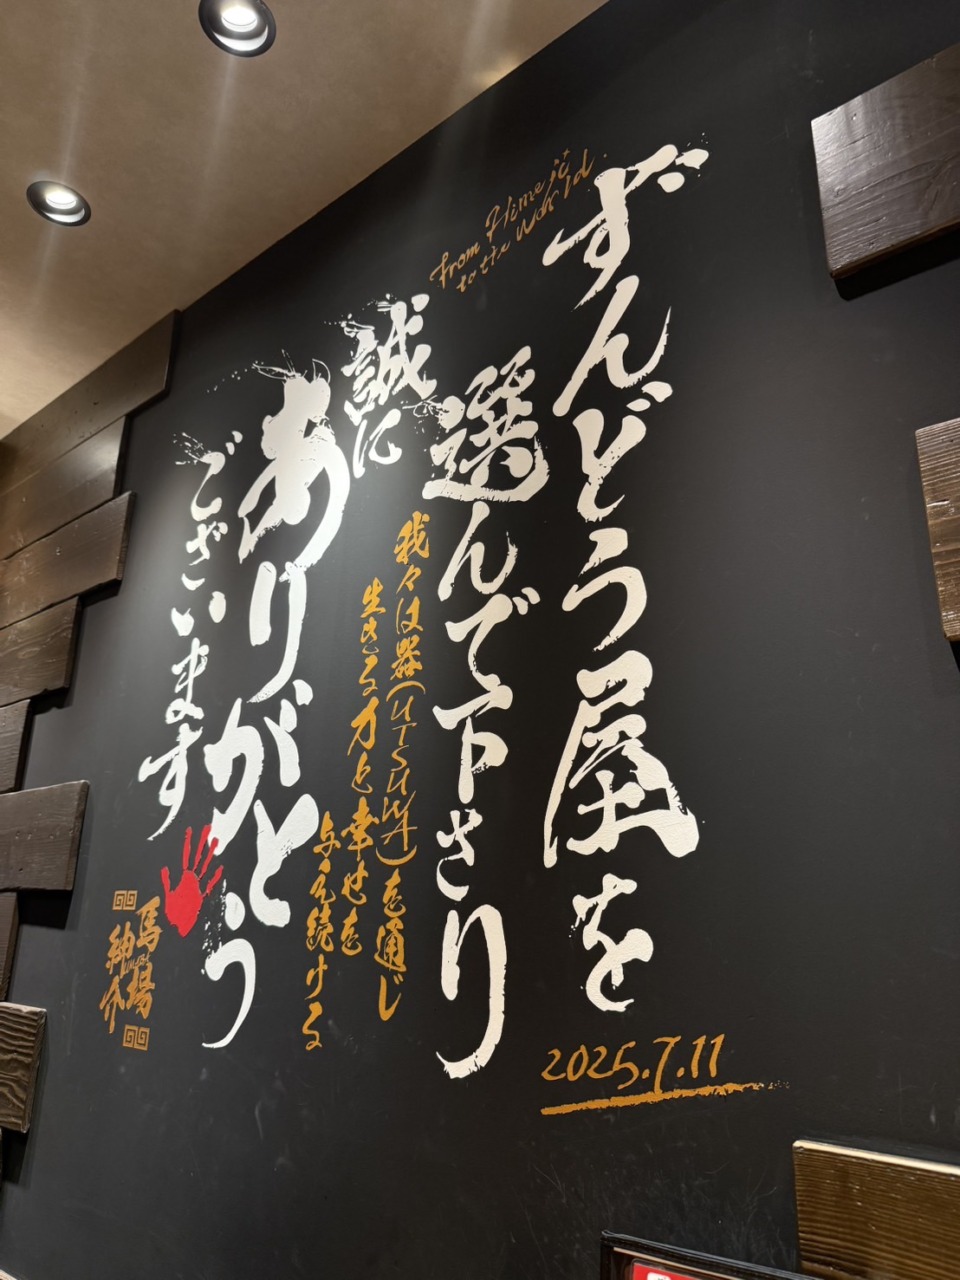 ずんどう屋を
選んで下さり
誠に
ありがとう
ございます
from Himeji
to the World
我々は器(UTSUWA)を通じ
生きる力と幸せを
与え続ける
2025.7.11
馬場
紳介